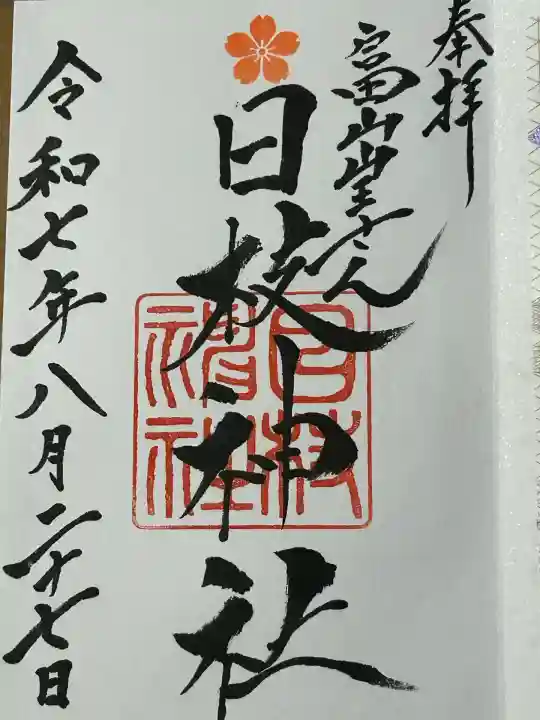 奉拝
富山山王さん
日枝神社
日枝神社
令和七年八月二十七日